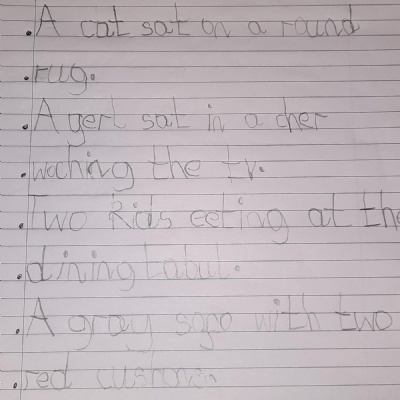 .A cat sat on a round
.rug.
.A gerl sat in a cher
.waching the tv.
.Two kids eeting at the
.dining tabul.
.A gray sofo with two
.red cushons.